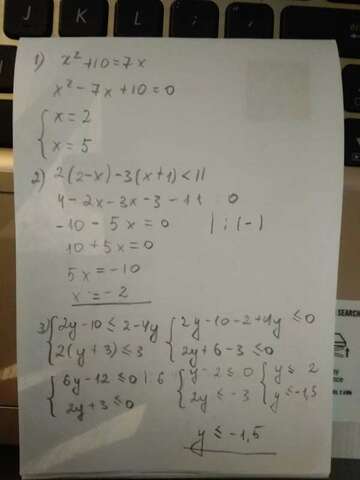 1) x²+10=7x
x²-7x+10=0
{ x=2
x=5
2) 2(2-x)-3(x+1)<11
4-2x-3x-3-11 0
-10-5x=0 | : (-)
10+5x=0
5x=-10
x=-2
3) { 2y-10≤2-4y { 2y-10-2+4y≤0
2(y+3)≤3 2y+6-3≤0
{ 6y-12≤0 | 6 { y-2≤0 { y≤2
2y+3≤0 2y≤-3 y≤-1,5
y≤-1,5
SEARCH